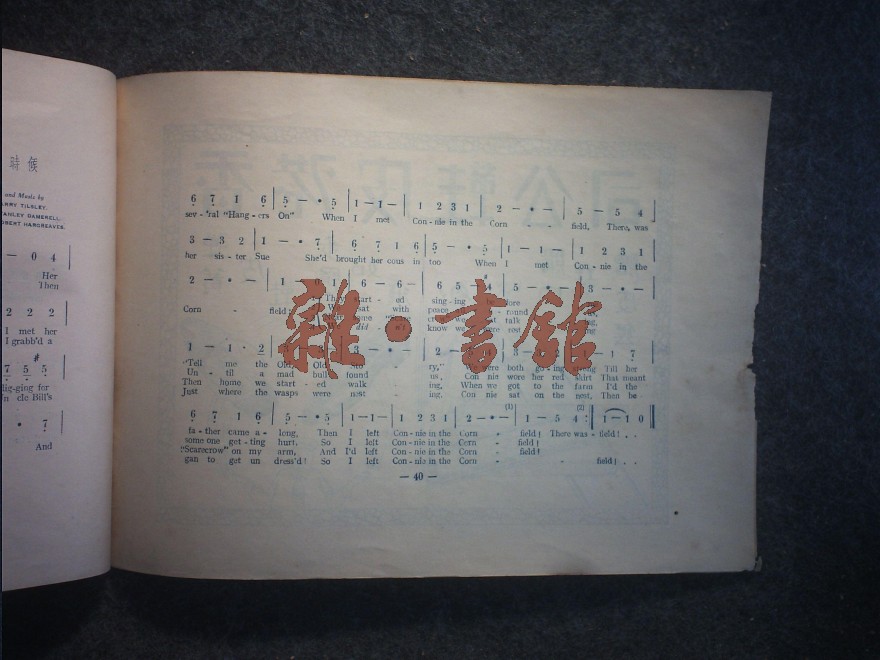 時候
and Music by
HARRY TILSLEY,
STANLEY DAMERELL,
ROBERT HARGREAVES.
— 0 4 |
Her
Then
2 2 2 |
I met her
I grabb'd a
7 5 5 |
dig-ging for
Un cle Bill's
• 7 |
And
6 7 1 6 | 5 — • 5 | 1—1— | 1 2 3 1 | 2 — • — | 5 — 5 4 |
sev-'ral "Hang-ers On" When I met Con-nie in the Corn - - field, There, was
3 — 3 2 | 1 — • 7 | 6 7 1 6 | 5 — • 5 | 1 — 1 — | 1 2 3 1 |
her sis-ter Sue She'd brought her cous in too When I met Con-nie in the
2 — • — | 1 6 1 | 6 — 6 — | 6 5 4 | 5 — • — | 3 — • — |
Corn - field!
start - ed sing-ing
sat with
talk
did know
雜·書館
1 — 1 · 2 3 — • — | 2 1 7 |
"Tell me the Old, Old Sto - ry," We were both go-ing strong Till her
Un - til a mad bull found us, Con nie wore her red skirt That meant
Then home we start - ed walk ing, When we got to the farm I'd the
Just where the wasps were nest ing, Con nie sat on the nest, Then be
6 7 1 6 | 5 — • 5 | 1—1— | 1 2 3 1 | 2—•— | (1) 1 — 5 4 :| (2) 1—1 0 ‖
fa-ther came a-long, Then I left Con-nie in the Corn - field! There was-field! . .
some one get-ting hurt, So I left Con-nie in the Corn - field!
"Scarecrow" on my arm, And I'd left Con-nie in the Corn - field!
gan to get un dress'd! So I left Con-nie in the Corn - field! . .
— 40 —